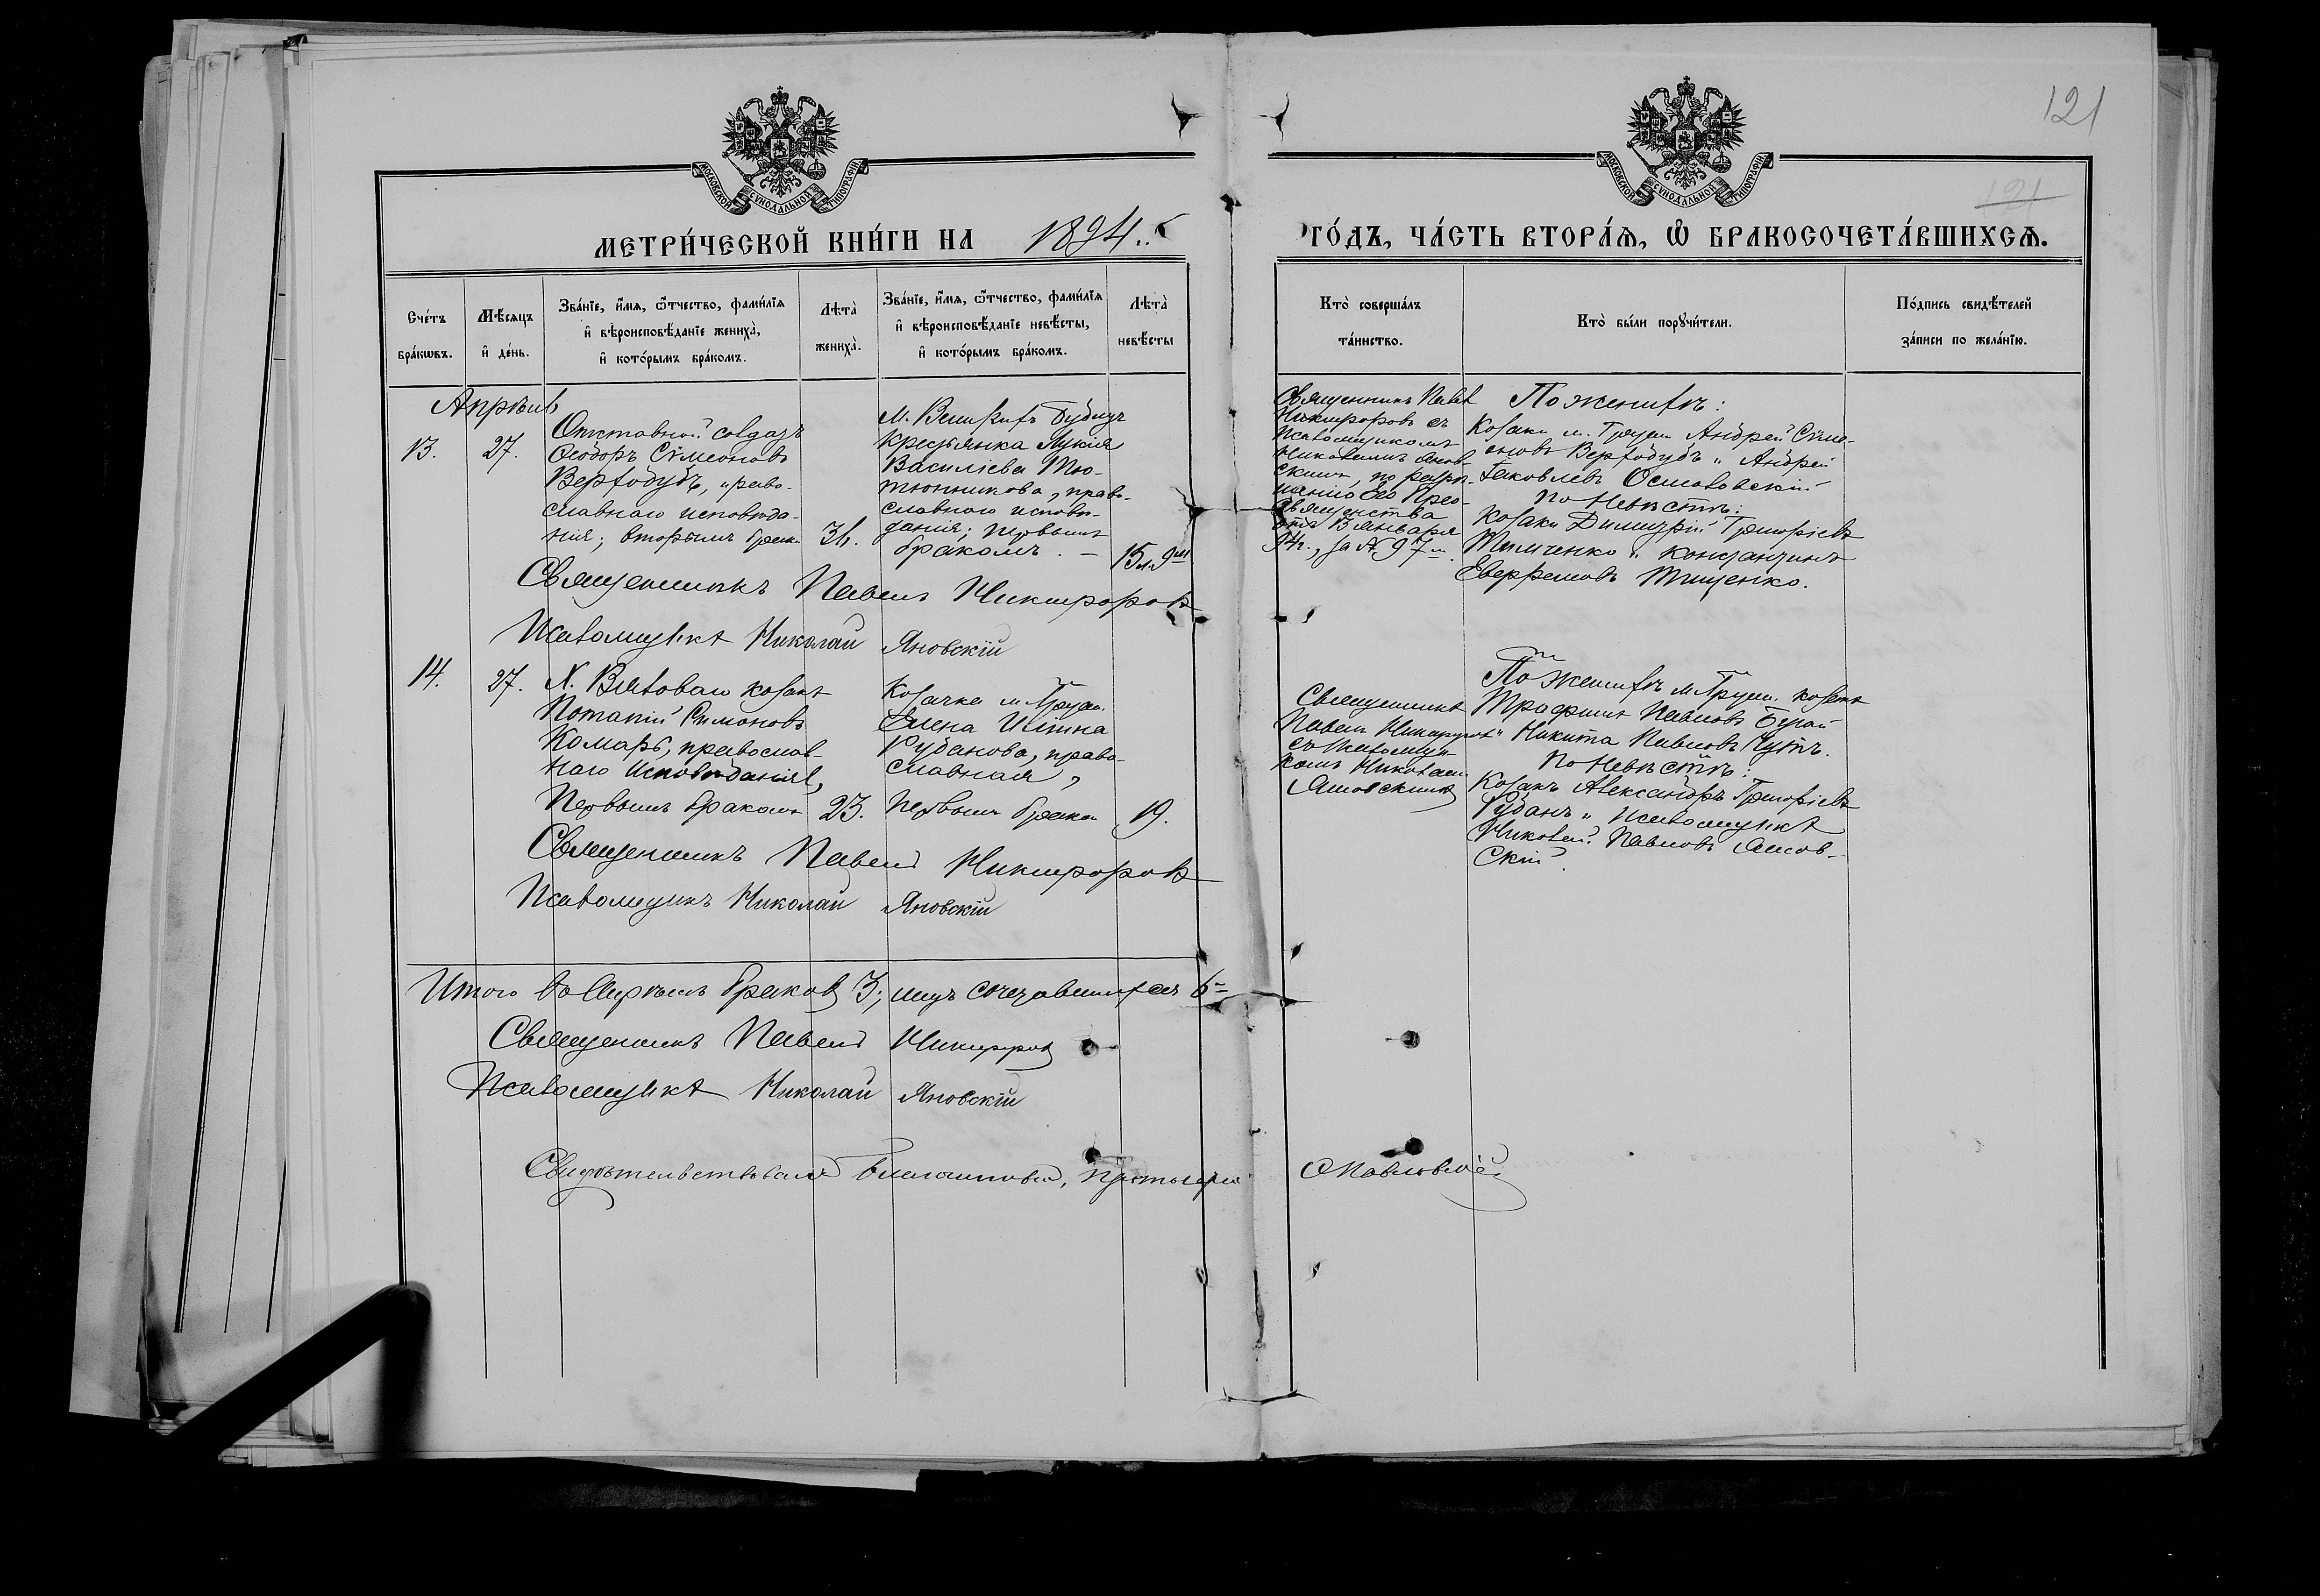 121
121
МОСКОВСКОЙ СѴНОДАЛЬНОЙ ТИПОГРАФІИ
МОСКОВСКОЙ СѴНОДАЛЬНОЙ ТИПОГРАФІИ
МЕТРИ́ЧЕСКОЙ КНИ́ГИ НА 1894
ГО́ДЪ, ЧА́СТЬ ВТОРА́Ѧ, Ѽ БРАКОСОЧЕТА́ВШИХСѦ.
Сче́тъ
бра́кѡвъ.
Мѣ́сяцъ
и҆ де́нь.
Зва́нїе, и҆́мѧ, ѻ҆́тчество, фами́лїѧ
и҆ вѣроисповѣ́данїе жениха̀,
и҆ кото́рымъ бра́комъ.
Лѣта̀
жениха̀.
Зва́нїе, и҆́мѧ, ѻ҆́тчество, фами́лїѧ
и҆ вѣроисповѣ́данїе невѣ́сты,
и҆ кото́рымъ бра́комъ.
Лѣта̀
невѣ́сты
Кто̀ соверша́лъ
та́инство.
Кто̀ бы́ли порꙋчи́тели.
По́дпись свидѣ́телей
за́писи по жела́нїю.
Апрѣль
13.
27.
Отставной солдатъ
Ѳеодоръ Сѵмеоновъ
Вертодубъ, право-
славнаго исповѣда-
нія; вторымъ брак.
34.
М. Великихъ Будищъ
крестьянка Лукія
Василіева Тю-
тюнникова, право-
славнаго исповѣ-
данія; первымъ
бракомъ. —
15 л. 9 м.
Священникъ Павелъ
Никифоровъ съ
псаломщикомъ
Николаемъ Янов-
скимъ, по разрѣ-
шенію Его Прео-
священства
отъ 13 января
94 г., за № 97
По женихѣ:
Козаки м. Груни Андрей Сѵме-
оновъ Вертодубъ и Андрей
Іаковлевъ Осиповскій
По невѣстѣ:
Козаки Димитрій Григоріевъ
Тимченко и Константинъ
Евфремовъ Тищенко.
Священникъ Павелъ Никифоровъ
Псаломщикъ Николай Яновскій
14.
27.
Х. козакъ
Потапій Симоновъ
Комаръ, православ-
наго исповѣданія,
первымъ бракомъ
23.
Козачка м. Груни
Елена Иліина
Рубанова, право-
славная,
первымъ бракомъ
19.
Священникъ
Павелъ Никифоровъ
съ псаломщи-
комъ Николаемъ
Яновскимъ
По женихѣ м. Груни козаки
Трофимъ Павловъ Бугай
и Никита Павловъ Чутъ.
По невѣстѣ:
Козакъ Александръ Григоріевъ
Рубанъ и псаломщикъ
Николай Павловъ Янов-
скій.
Священникъ Павелъ Никифоровъ
Псаломщикъ Николай Яновскій
Итого въ Апрѣлѣ браковъ 3; лицъ сочетавшихся 6
Священникъ Павелъ Никифоровъ
Псаломщикъ Николай Яновскій
Свидѣтельствовалъ Благочинный, Протоіерей Павловскій